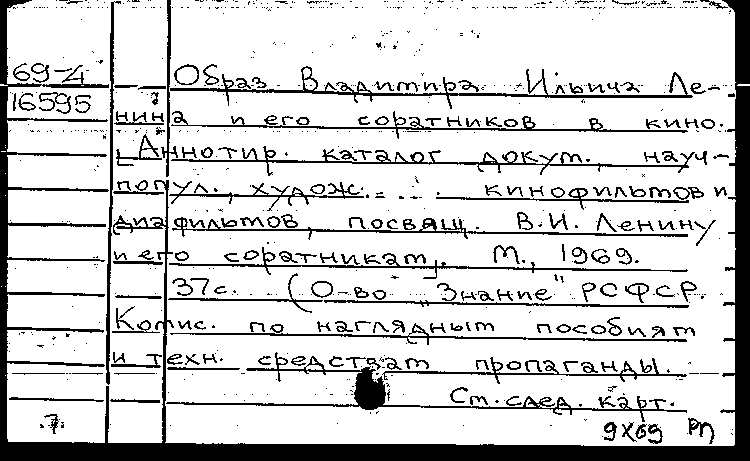 69-4
16595
Образ Владимира Ильича Ле-
нина и его соратников в кино.
[Аннотир. каталог докум., науч-
попул., худож. . . . кинофильмов и
диафильмов, посвящ. В.И. Ленину
и его соратникам]. М., 1969.
37с. (О-во "Знание" РСФСР.
Комис. по наглядным пособиям
и техн. средствам пропаганды.
Ст. след. карт.
.7.
9X69 РП